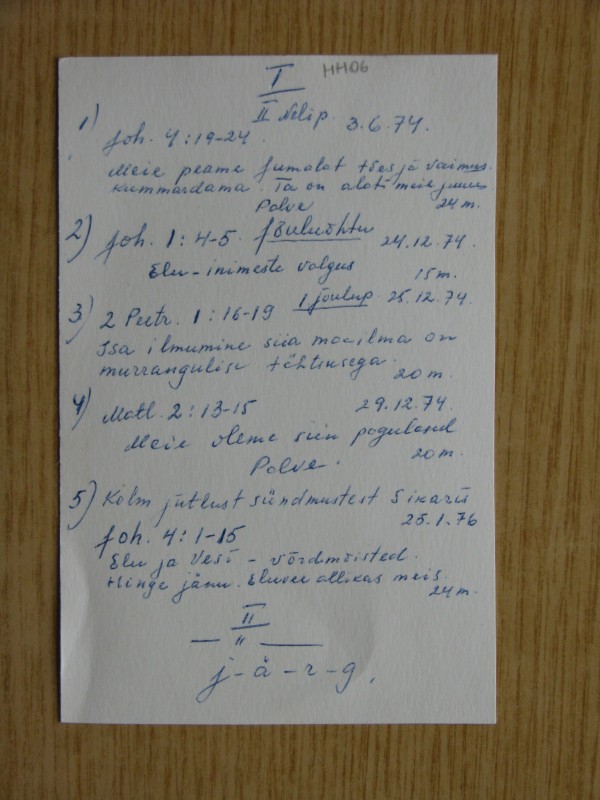 I HH06
II Nelip. 3.6.74.
1) Joh. 4:19-24.
Meie peame Jumalat tões ja vaimus
kummardama. Ta on alati meie juures
Palve 24 m.
2) Joh. 1:4-5. Jõuluõhtu 24.12.74.
Elu - inimeste valgus 15 m.
3) 2 Peetr. 1:16-19 1 jõulup. 25.12.74.
Isa ilmumine siia maailma on
murrangulise tähtsusega. 20 m.
4) Matt. 2:13-15 29.12.74.
Meie oleme siin pagulased
Palve. 20 m.
5) Kolm jutlust sündmustest Sikaris
25.1.76
Joh. 4:1-15
Elu ja Vesi - võrdmõisted.
Hinge jänu. Eluvee allikas meis.
24 m.
II
— " —
j-ä-r-g.